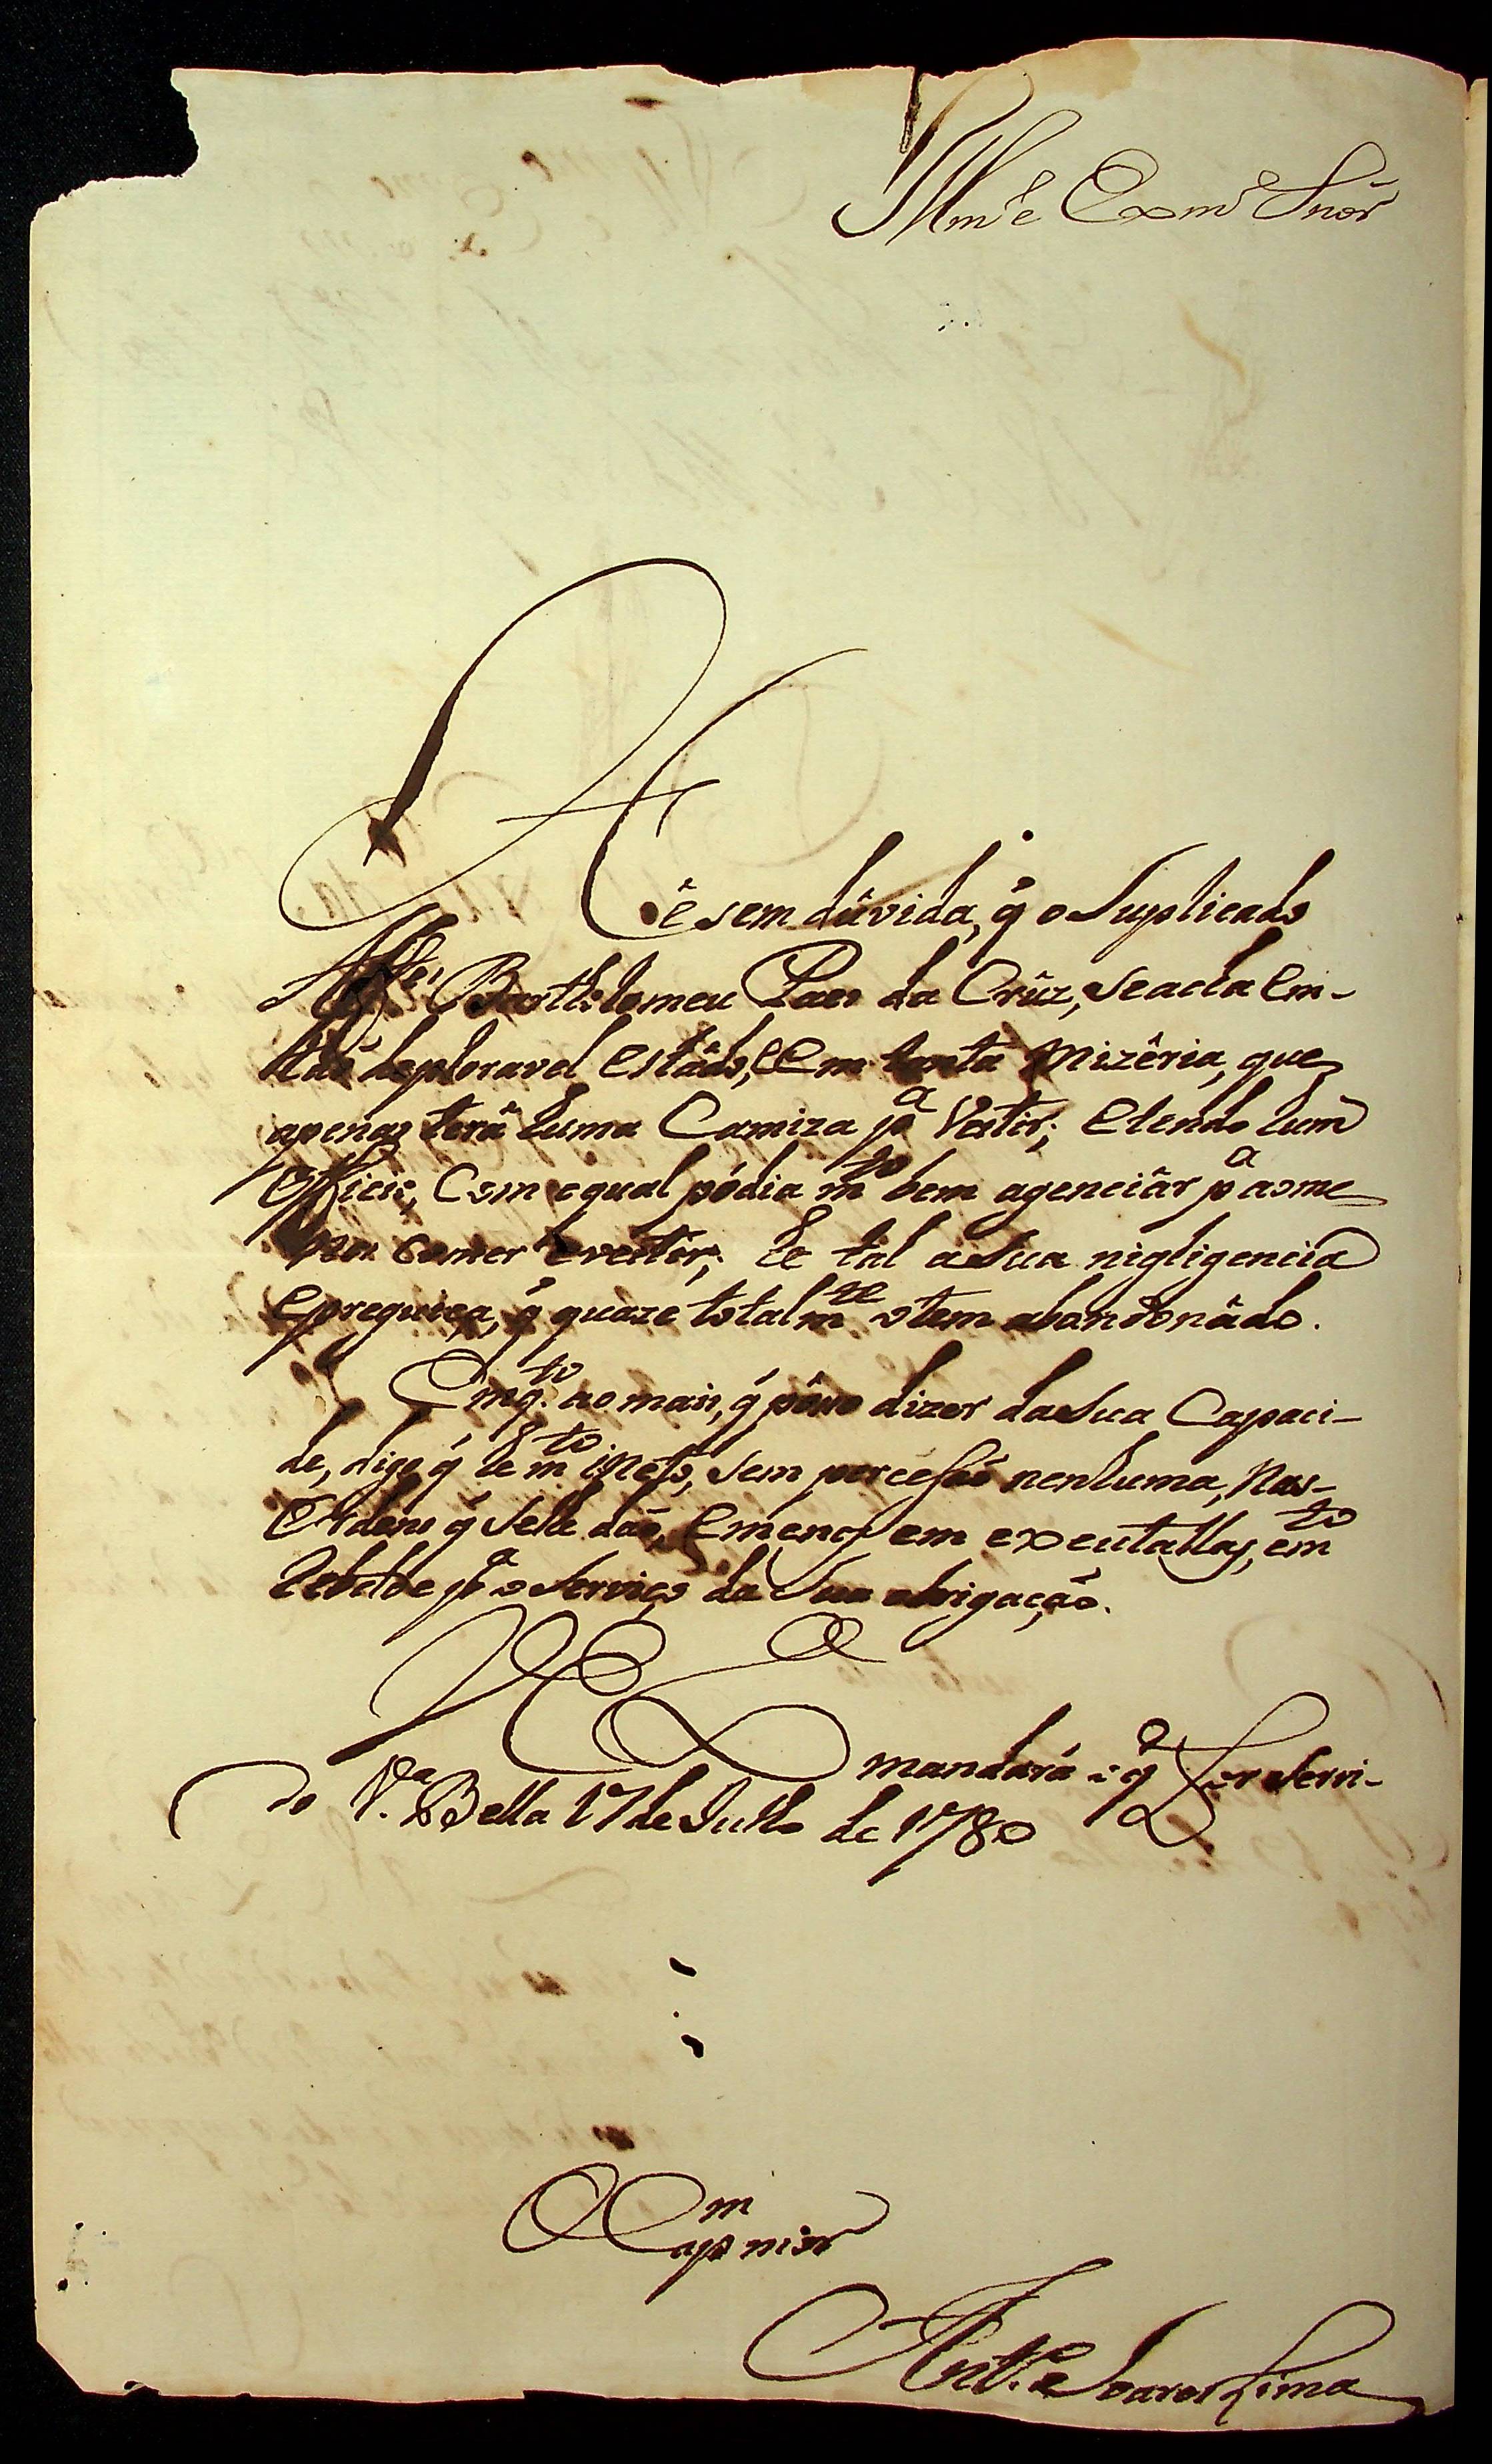 Illmo e Exmo Snor
Hê sem dûvida, q̃ o Suplicado
Alfes Bartholomeu Paes da Crûz, se acha Em-
tão deploravel Estâdo, E Em tanta Mizêria, que
apenas terâ huma Camiza pa Vestir; E tendo hum
Officio, Com o qual pôdia mto bem agenciâr pa ao me
nos Comer e vestir; he tal a Sua nigligencia
E preguiça, q̃ quaze totalmte o tem abandonâdo.
Emqto ao mais, q̃ pôsso dizer da Sua Capaci-
de, digo q̃ he mto ineto, Sem percessão nenhuma, Nas-
Ordens q̃ Se lhe dão, E menos em executallas, em to
Rebelde pa o Serviço da Sua obrigação.
V Ea mandará o q̃ for Servi-
do Va Bella 17 de Julho de 1780
O Capm mór
Anto Soares Lima